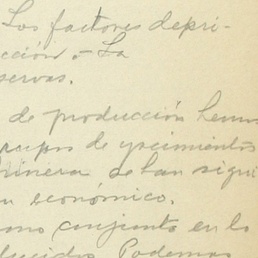 Los factores depri-
cción o La
servas.
de producción hemos
grupos de yacimientos
primera se han sigui
económico.
como conjunto en lo
Podemos